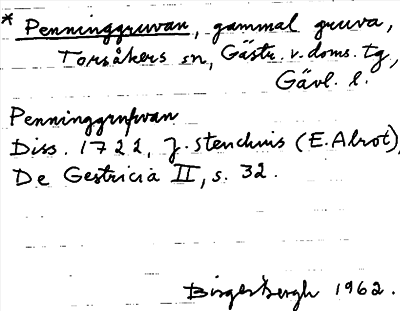 * Penninggruvan, gammal gruva,
Torsåkers sn, Gästr. v. doms. tg,
Gävl. l.
Penninggrufwan
Diss. 1722, J. Stenchnis (E. Alrot),
De Gestricia II, s. 32.
Birger Bergh 1962.